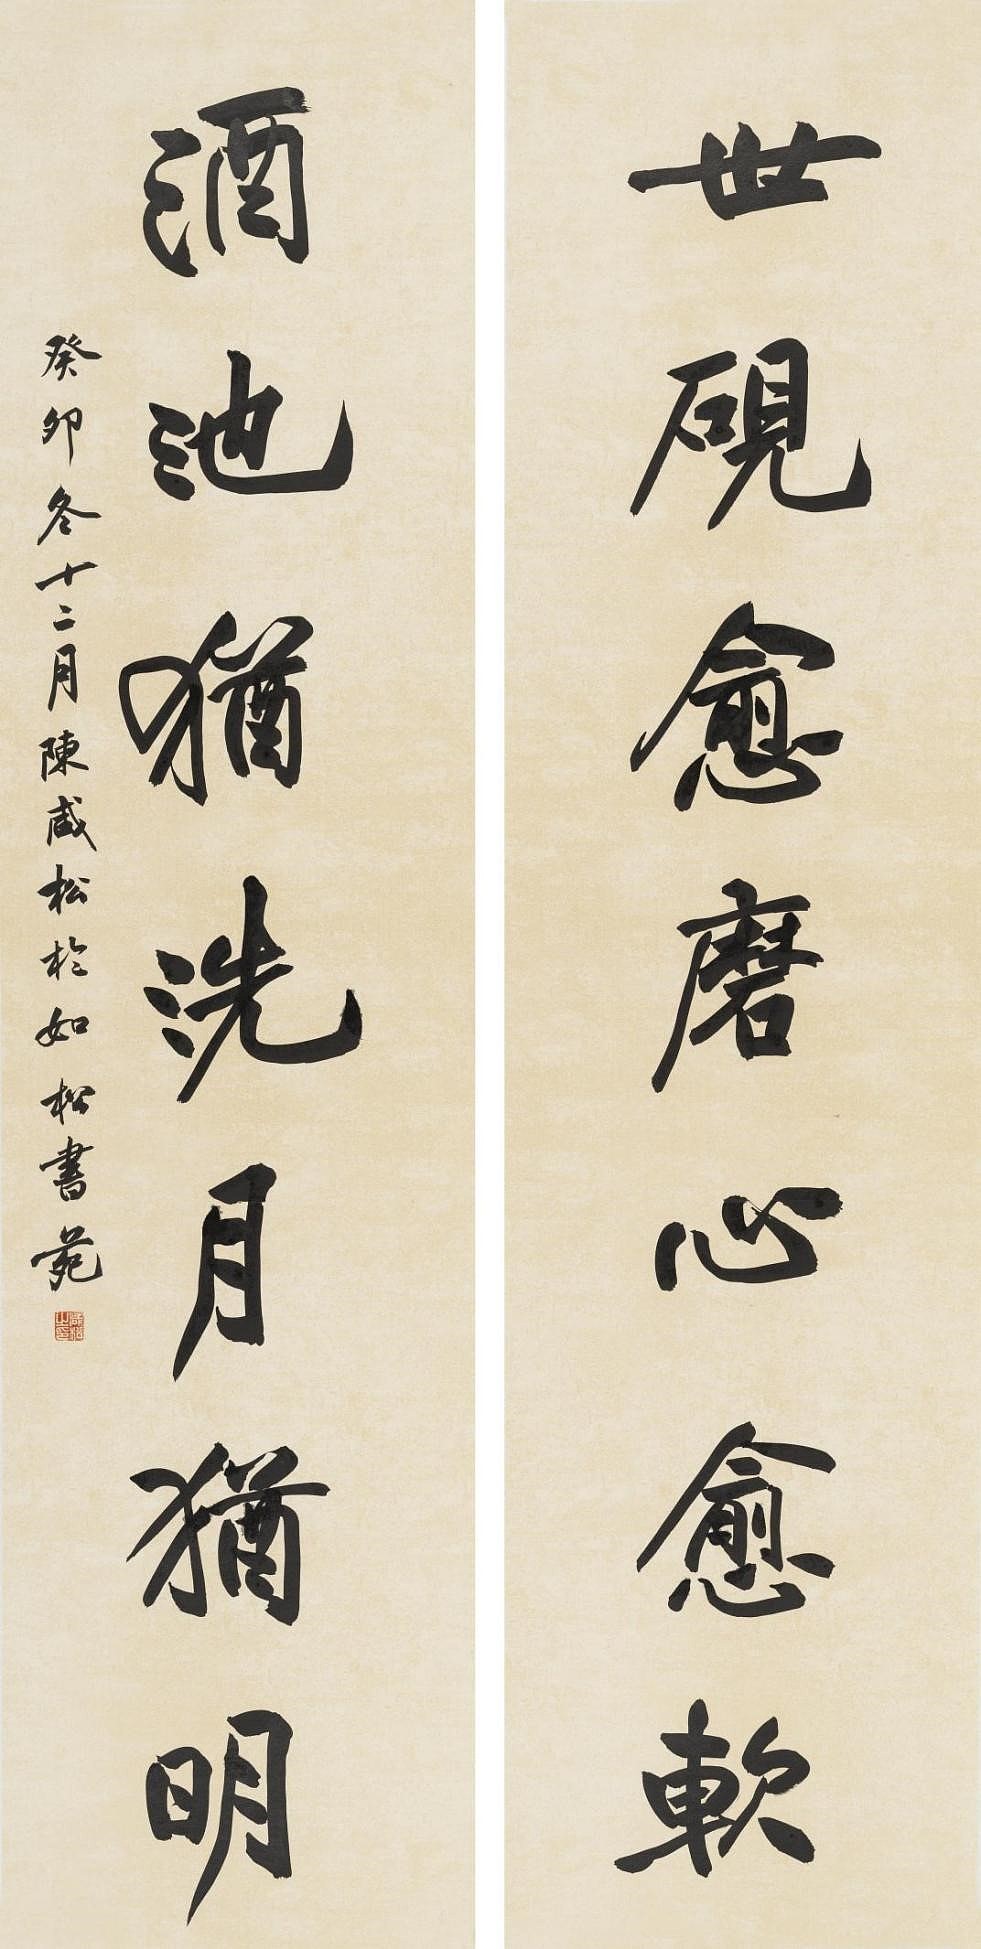 世硯愈磨心愈軟
酒池猶洗月猶明
癸卯冬十二月陳咸松於如松書苑